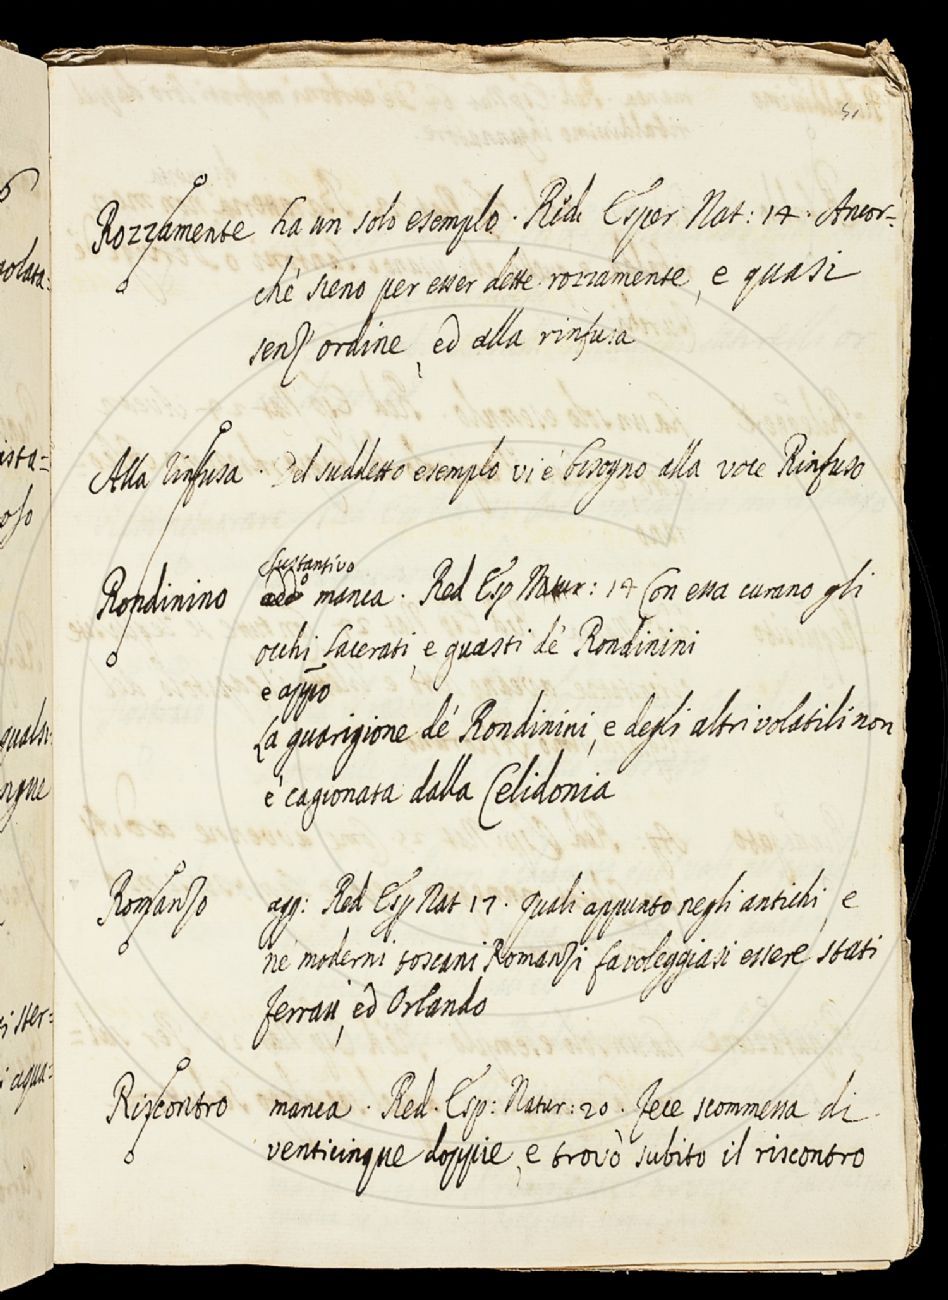 51
Rozzamente ha un solo esemplo. Red. Esper. Nat: 14. Ancor-
chè sieno per esser dette rozzamente, e quasi
senz' ordine, ed alla rinfusa
Alla rinfusa. Del suddetto esemplo vi è bisogno alla voce Rinfuso
sustantivo
Rondinino manca. Red Esp Natur: 14 Con essa curano gli
occhi lacerati, e guasti de' Rondinini
e appo
La guarigione de' Rondinini, e degli altri volatili non
è cagionata dalla Celidonia
Romanzo agg: Red Esp Nat 17. quali appunto negli antichi, e
ne' moderni toscani Romanzi favoleggiasi essere stati
ferraù, ed Orlando
Riscontro manca. Red. Esp: Natur: 20. Fece scommessa di
venticinque doppie, e trovò subito il riscontro